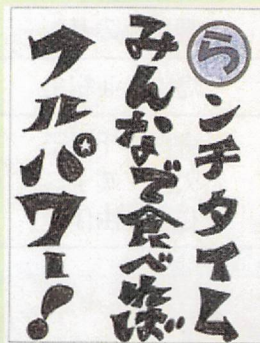 らンチタイム
みんなで食べれば
フルパワー！